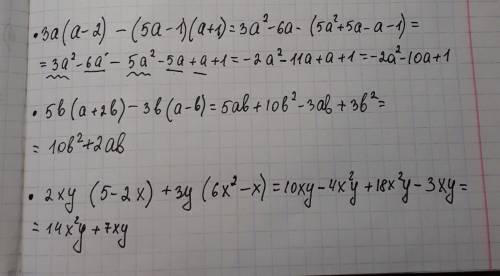 • 3a(a-2) - (5a-1)(a+1) = 3a²-6a - (5a²+5a-a-1) =
= 3a²-6a-5a²-5a+a+1 = -2a²-11a+a+1 = -2a²-10a+1
• 5b(a+2b) - 3b(a-b) = 5ab+10b²-3ab+3b² =
= 10b²+2ab
• 2xy (5-2x) + 3y (6x²-x) = 10xy-4x²y+18x²y-3xy =
= 14x²y+7xy